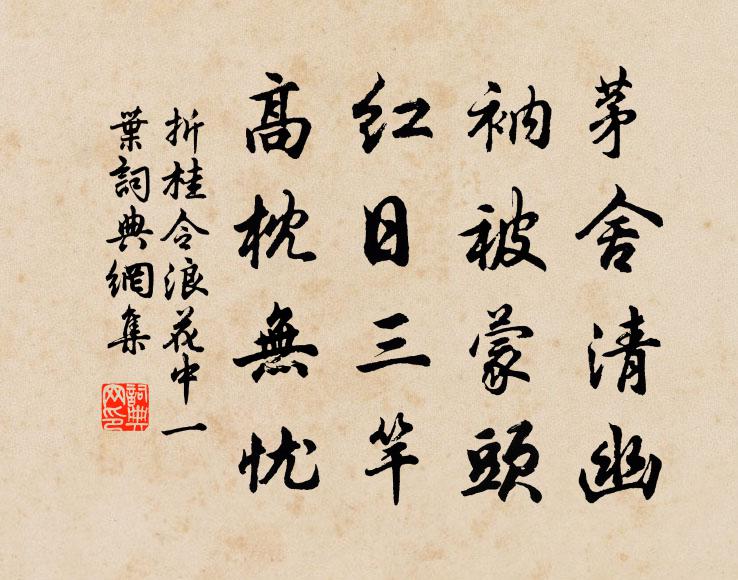 茅舍清幽
衲被蒙頭
红日三竿
高枕無忧
折桂令浪花中一
葉詞典網集
詞典网印